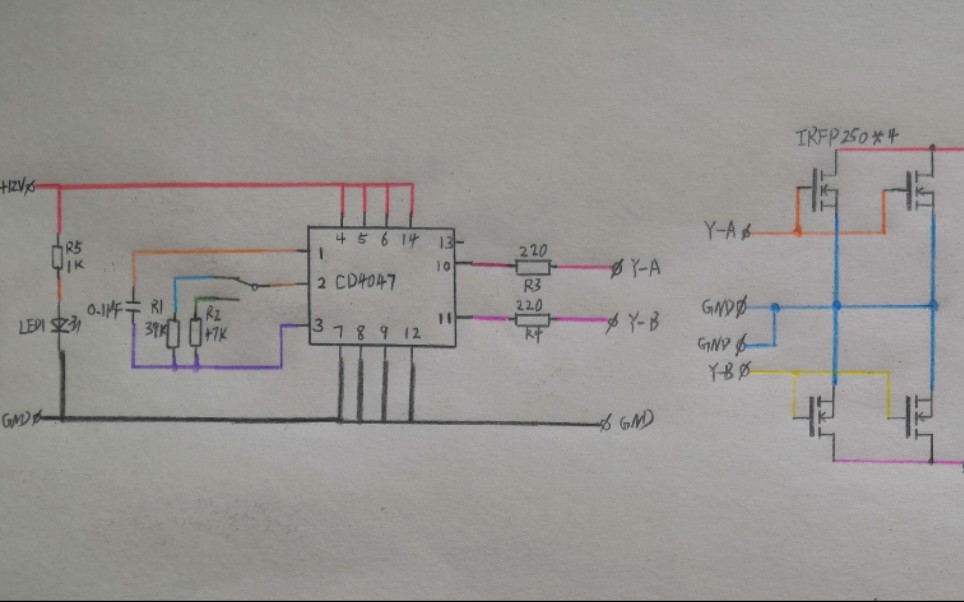 IRFP250*4
+12V
R5
1K
4 5 6 14
13
1
2
3
CD4047
10
11
220
R3
Y-A
220
R4
Y-B
0.1μF
R1
39K
R2
47K
LED1
7 8 9 12
GND
GND
Y-A
GND
GND
Y-B